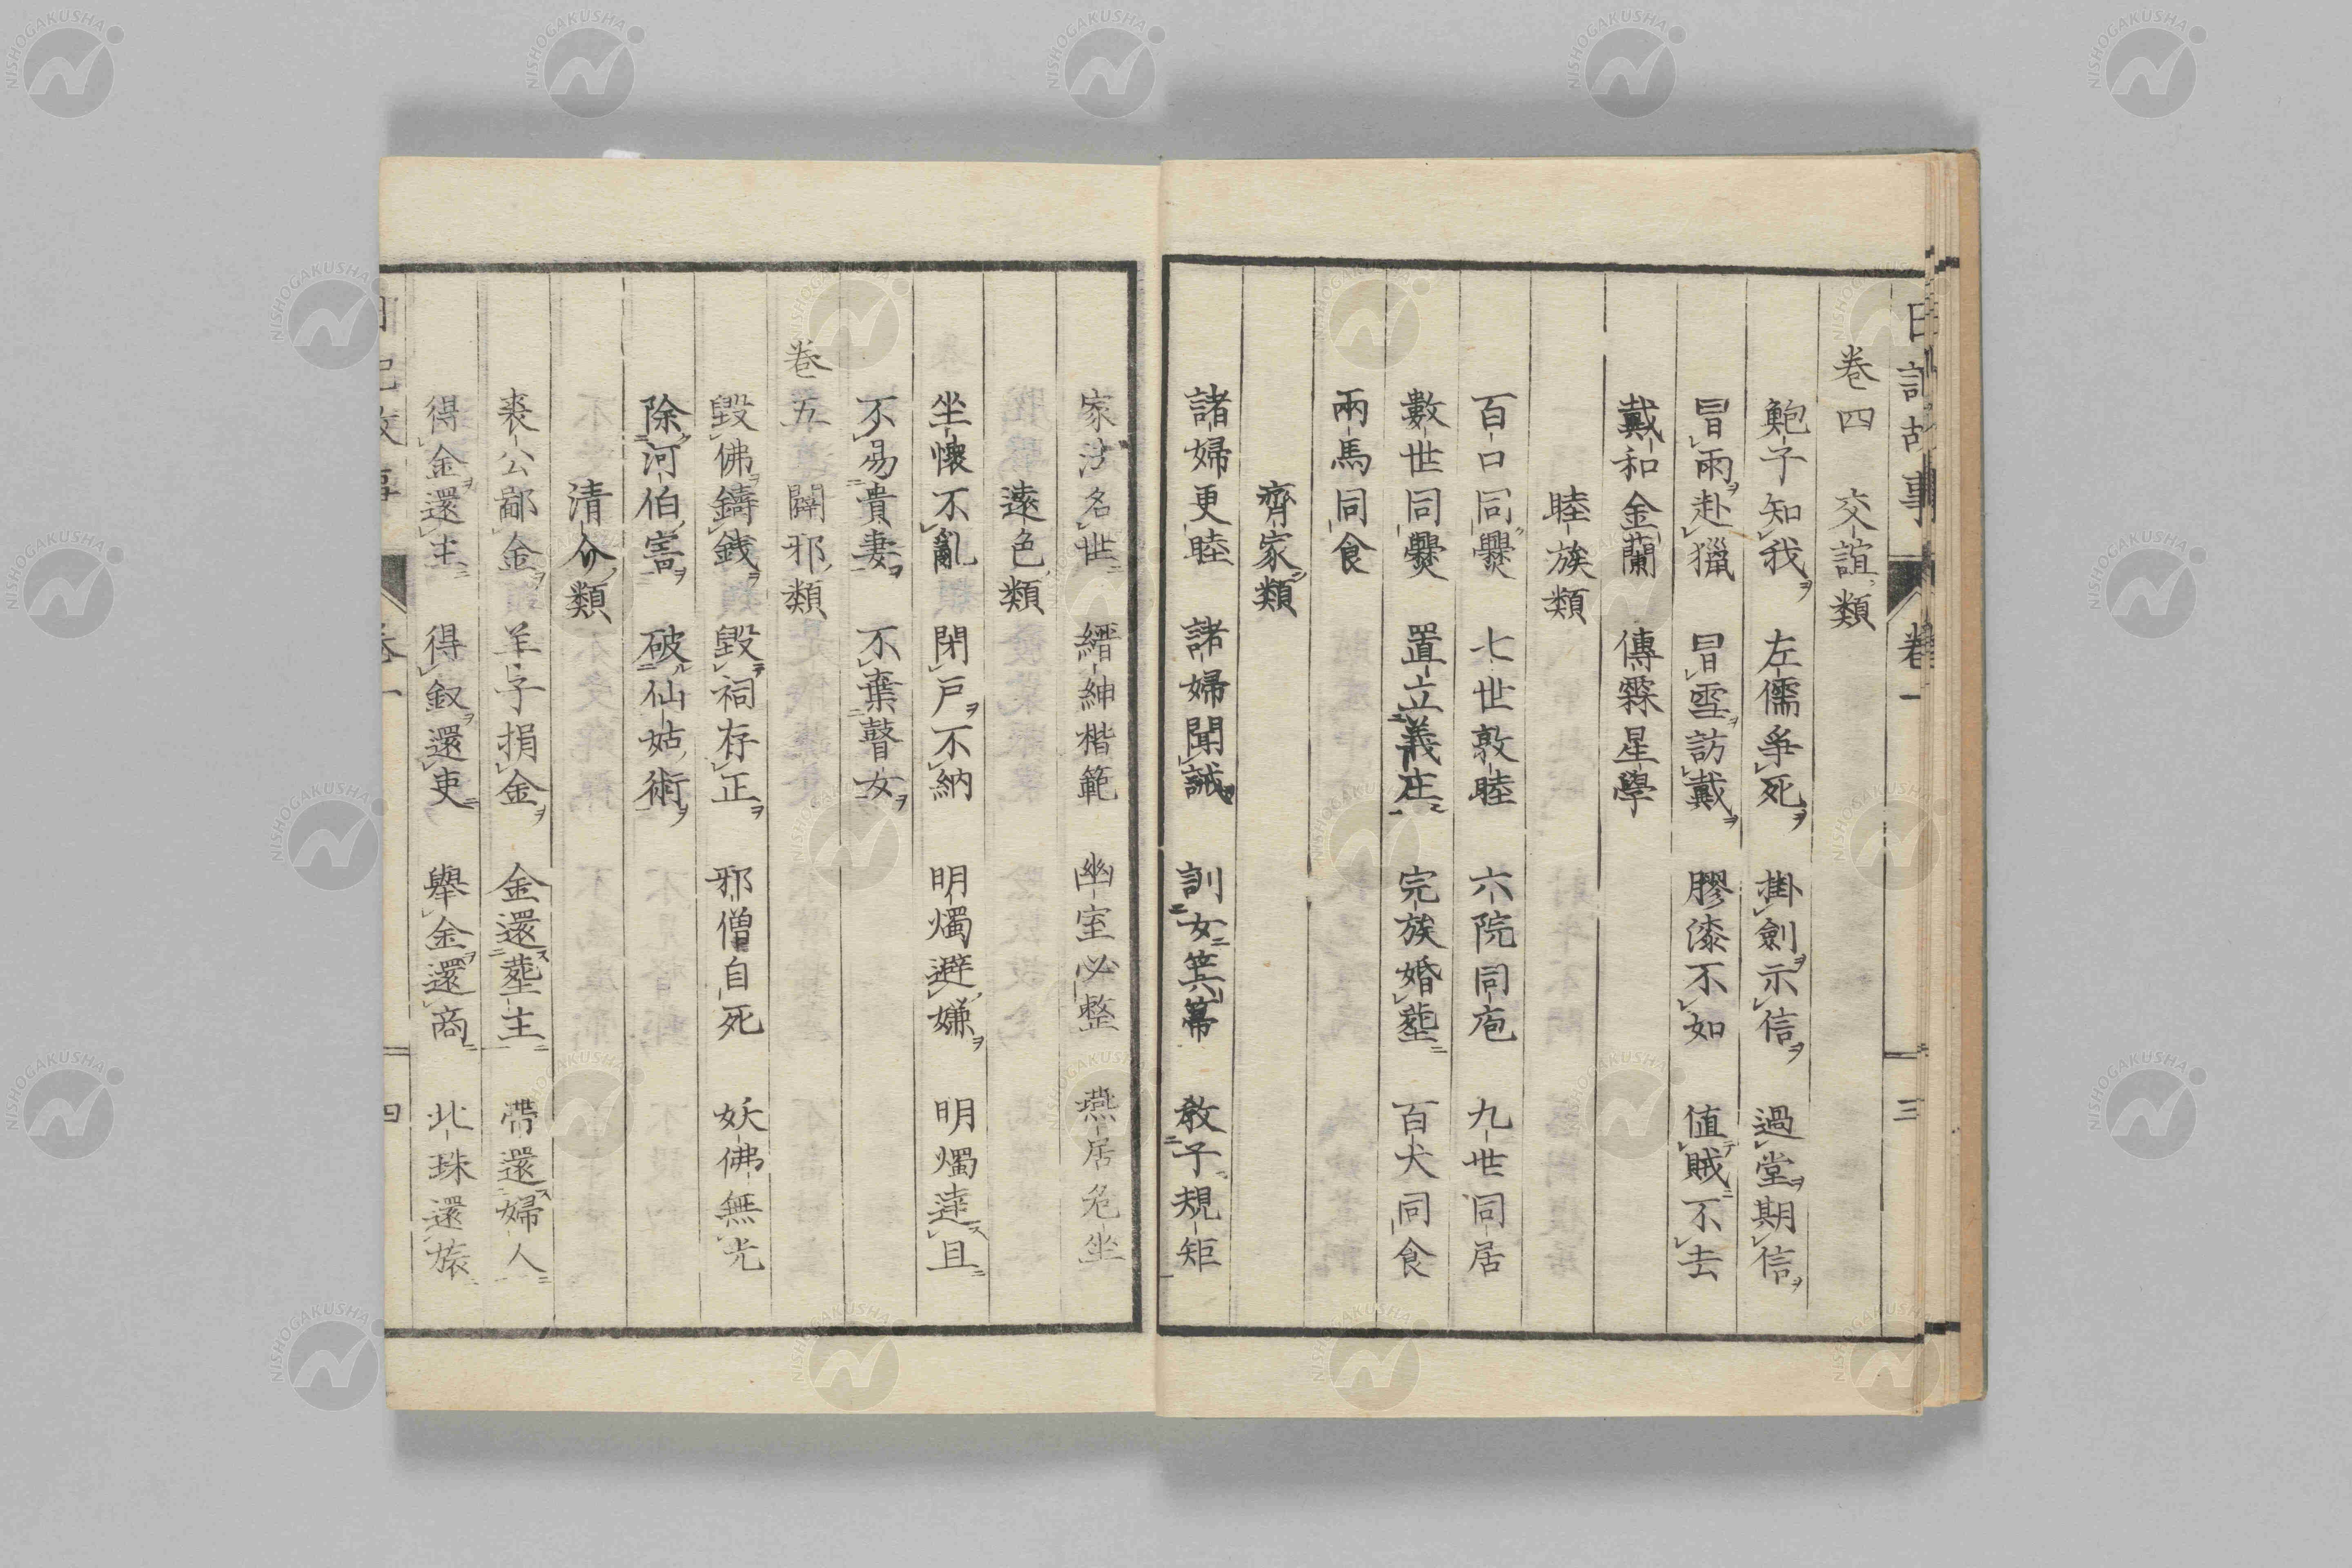 卷四 交誼類
鮑子知我 左儒爭死 掛劍示信 過堂期信
冒雨赴獵 冒雪訪戴 膠漆不如 值賊不去
戴和金蘭 傳霖星學
睦族類
百口同爨 七世敦睦 六院同庖 九世同居
數世同爨 置立義庄 完族婚塟 百犬同食
兩馬同食
齊家類
諸婦更睦 諸婦聞誡 訓女箕箒 教子規矩
家法名世 縉紳楷範 幽室必整 燕居危坐
遠色類
坐懷不亂 閉戶不納 明燭避嫌 明燭達旦
不易貴妻 不棄瞽女
卷五 闢邪類
毀佛鑄錢 毀祠存正 邪僧自死 妖佛無光
除河伯害 破仙姑術
清介類
裘公鄙金 羊子捐金 金還塟主 帶還婦人
得金還主 得釵還吏 舉金還商 北珠還旅
日記故事 卷一 三
日記故事 卷一 四
NISHOGAKUSHA